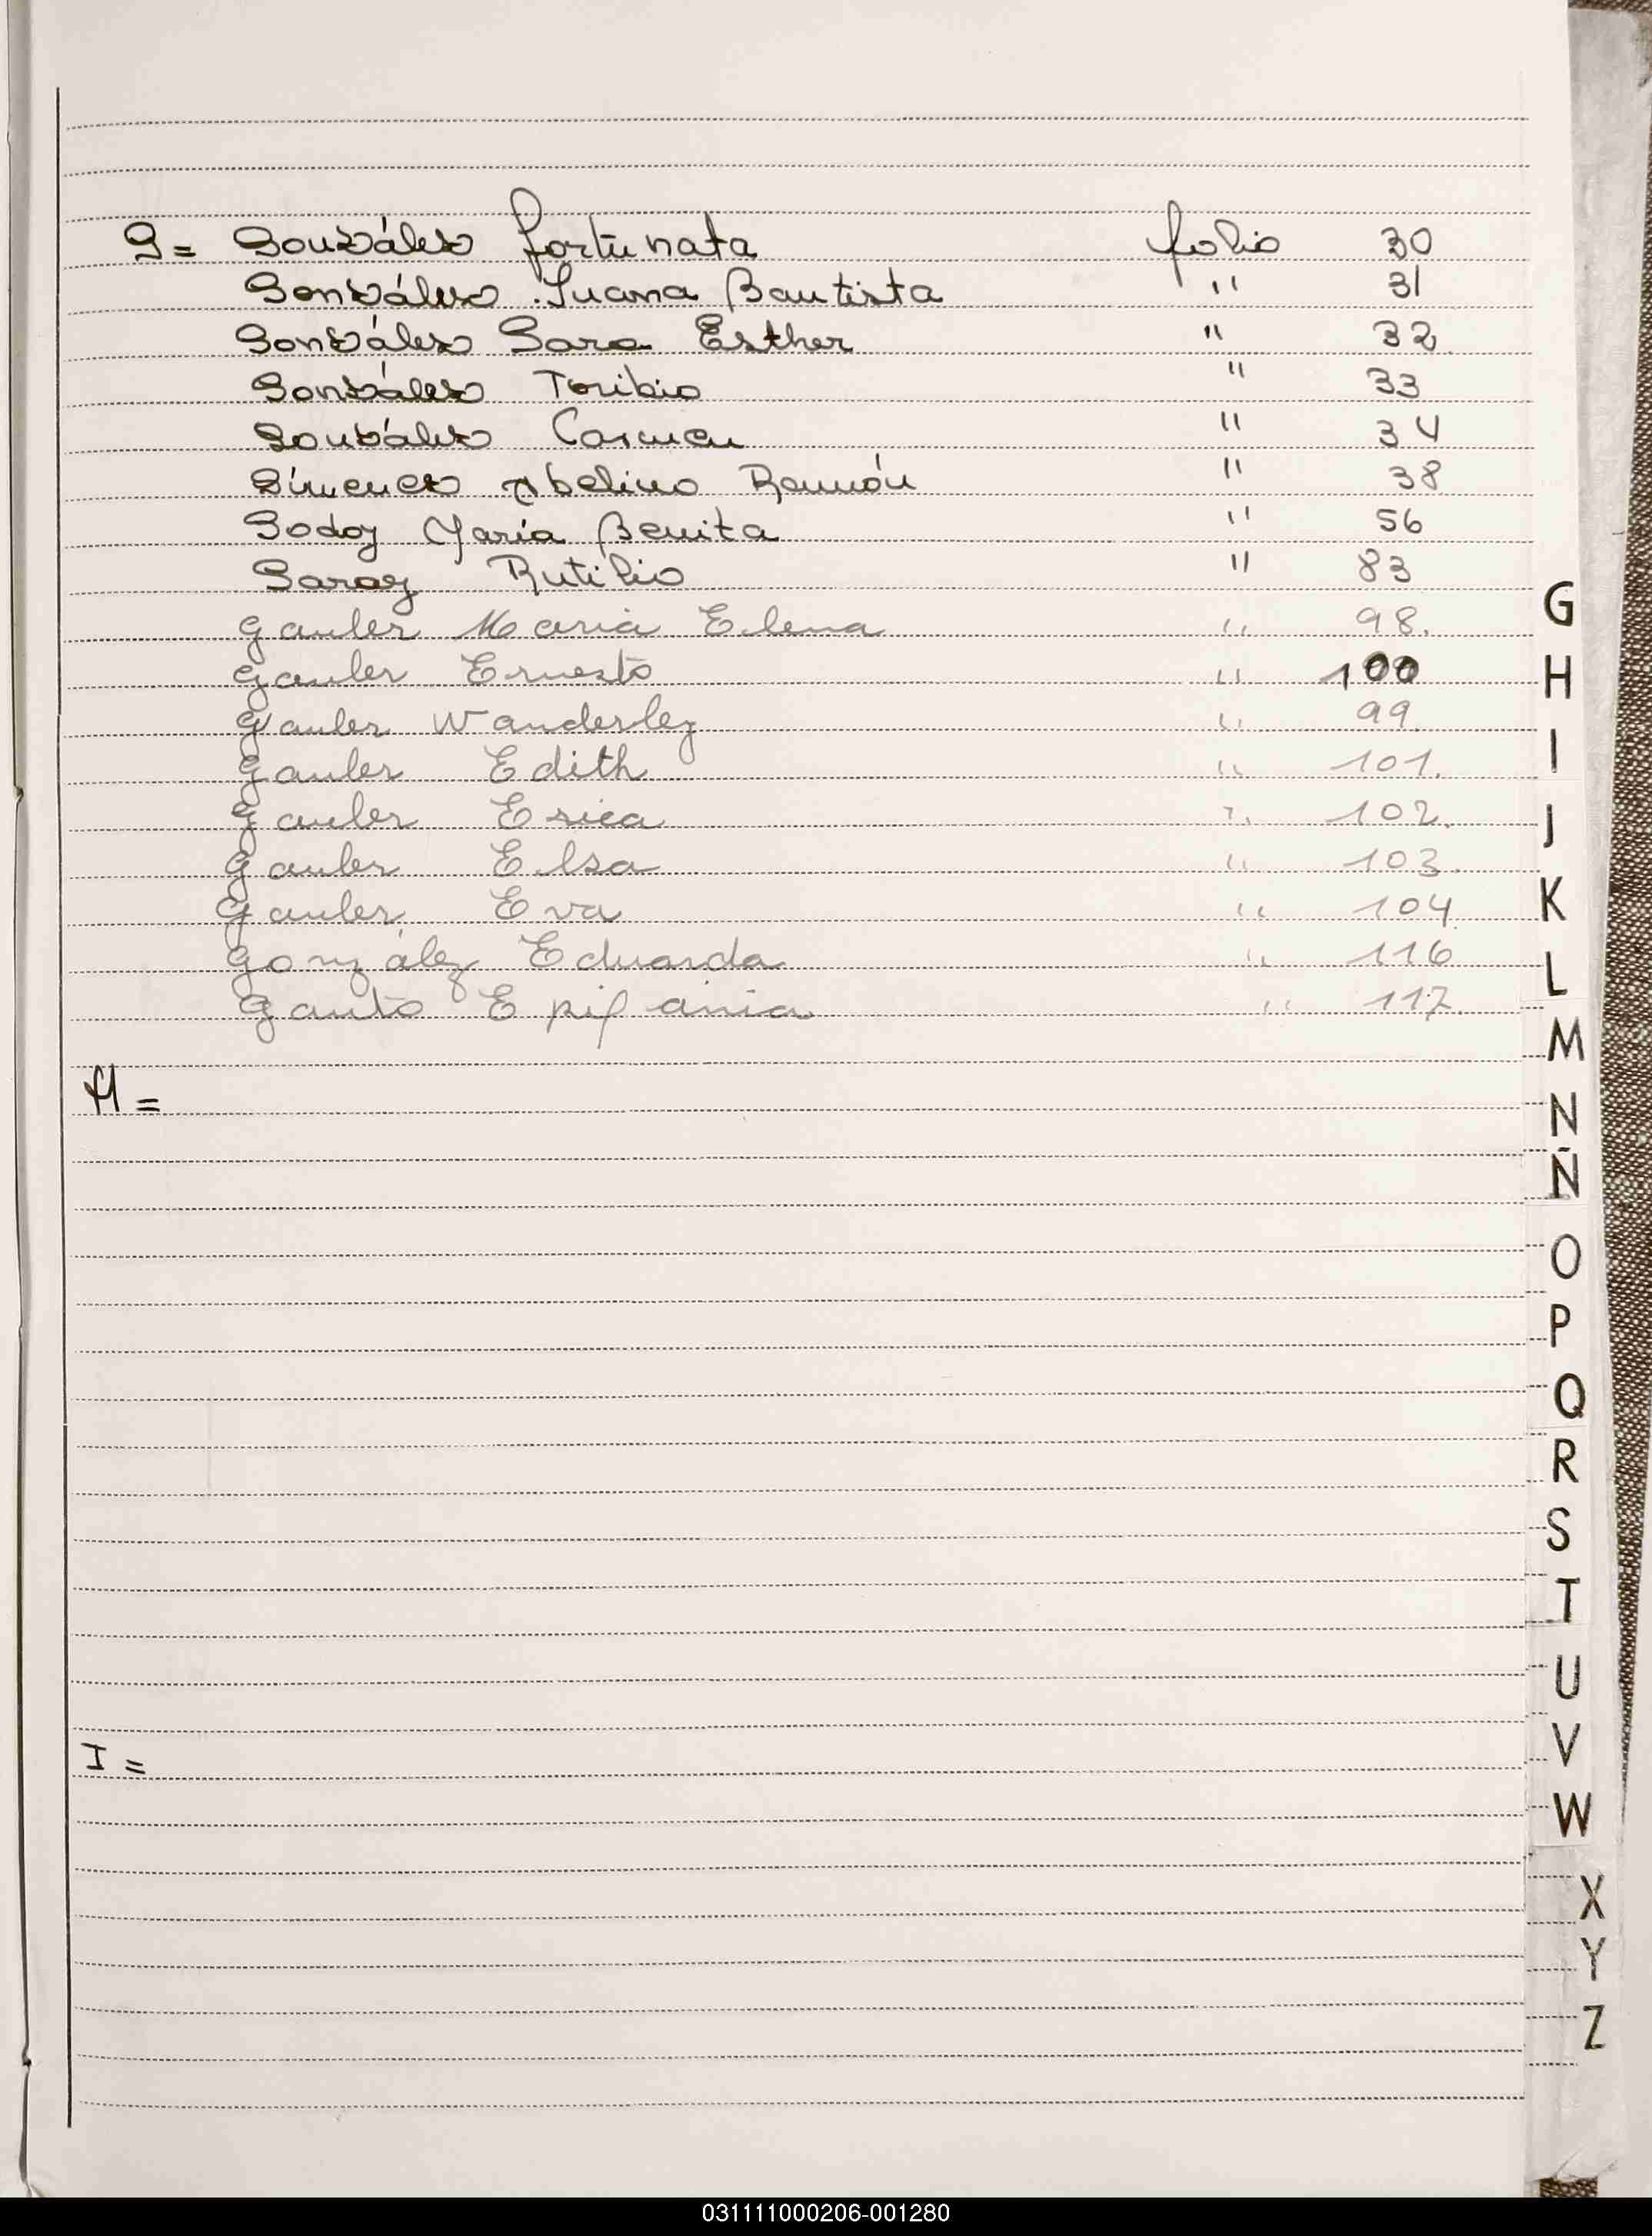 G = González Fortunata folio 30
González Juana Bautista " 31
González Sara Esther " 32
González Toribio " 33
González Carmen " 34
Gímenez Abelino Ramón " 38
Godoy María Benita " 56
Garay Rutilio " 83
Gauler Maria Elena " 98.
Gauler Ernesto " 100
Gauler Wanderley " 99.
Gauler Edith " 101.
Gauler Erica " 102.
Gauler Elsa " 103.
Gauler Eva " 104.
González Eduarda " 116
Gauto Epifania " 117.
H =
I =
G
H
I
J
K
L
M
N
Ñ
O
P
Q
R
S
T
U
V
W
X
Y
Z
031111000206-001280